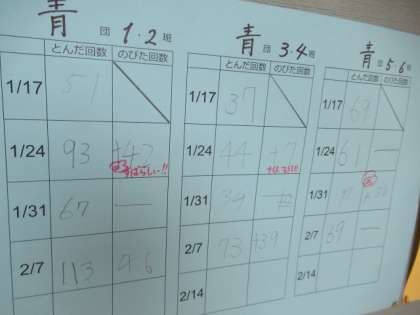 青 団 1・2 班
とんだ回数 のびた回数
1/17 51
1/24 93 +42
すばらしい!!
1/31 67 —
2/7 113 +46
青 団 3・4 班
とんだ回数 のびた回数
1/17 37
1/24 44 +7
1/31 34 —
2/7 73 +39
2/14
青 団 5 6 班
とんだ回数 のびた回数
1/17 69
1/24 61 —
1/31
2/7 69 —
2/14